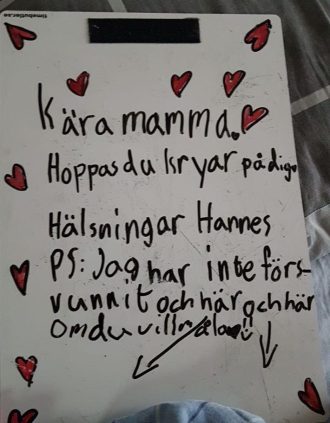 timebutler.se
Kära mamma.
Hoppas du kryar på dig.
Hälsningar Hannes
PS: Jag har inte förs-
vunnit och här och här
om du vill